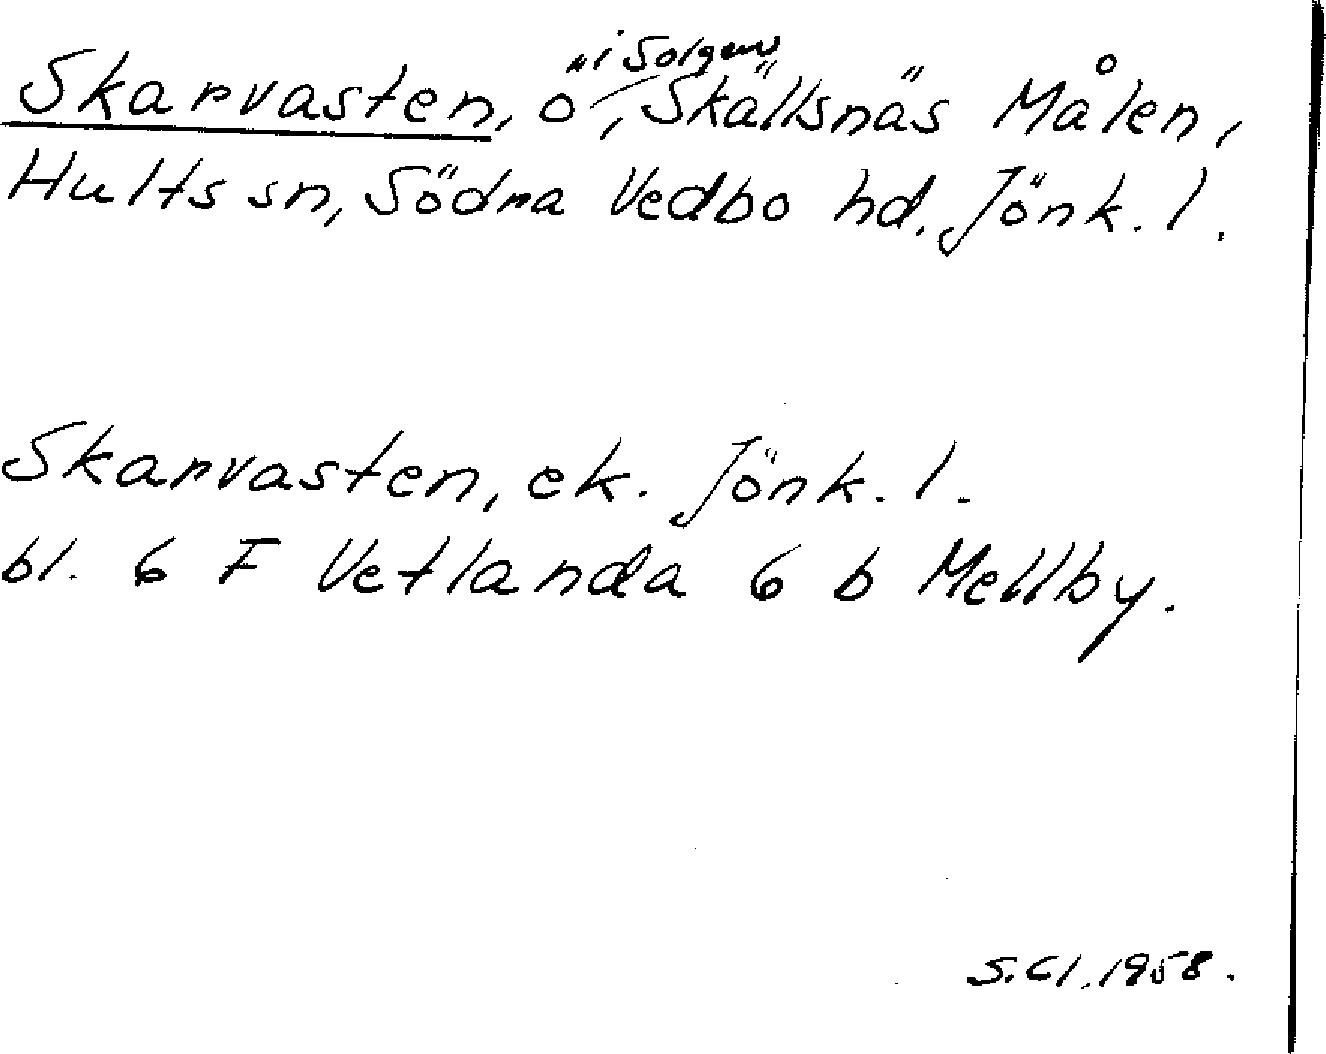 Skarvasten, ö i Solgen, Skällsnäs Målen,
Hults sn, Södra Vedbo hd. Jönk. l.
Skarvasten, ek. Jönk. l.
bl. 6 F Vetlanda 6 b Mellby.
S.Cl. 1958.